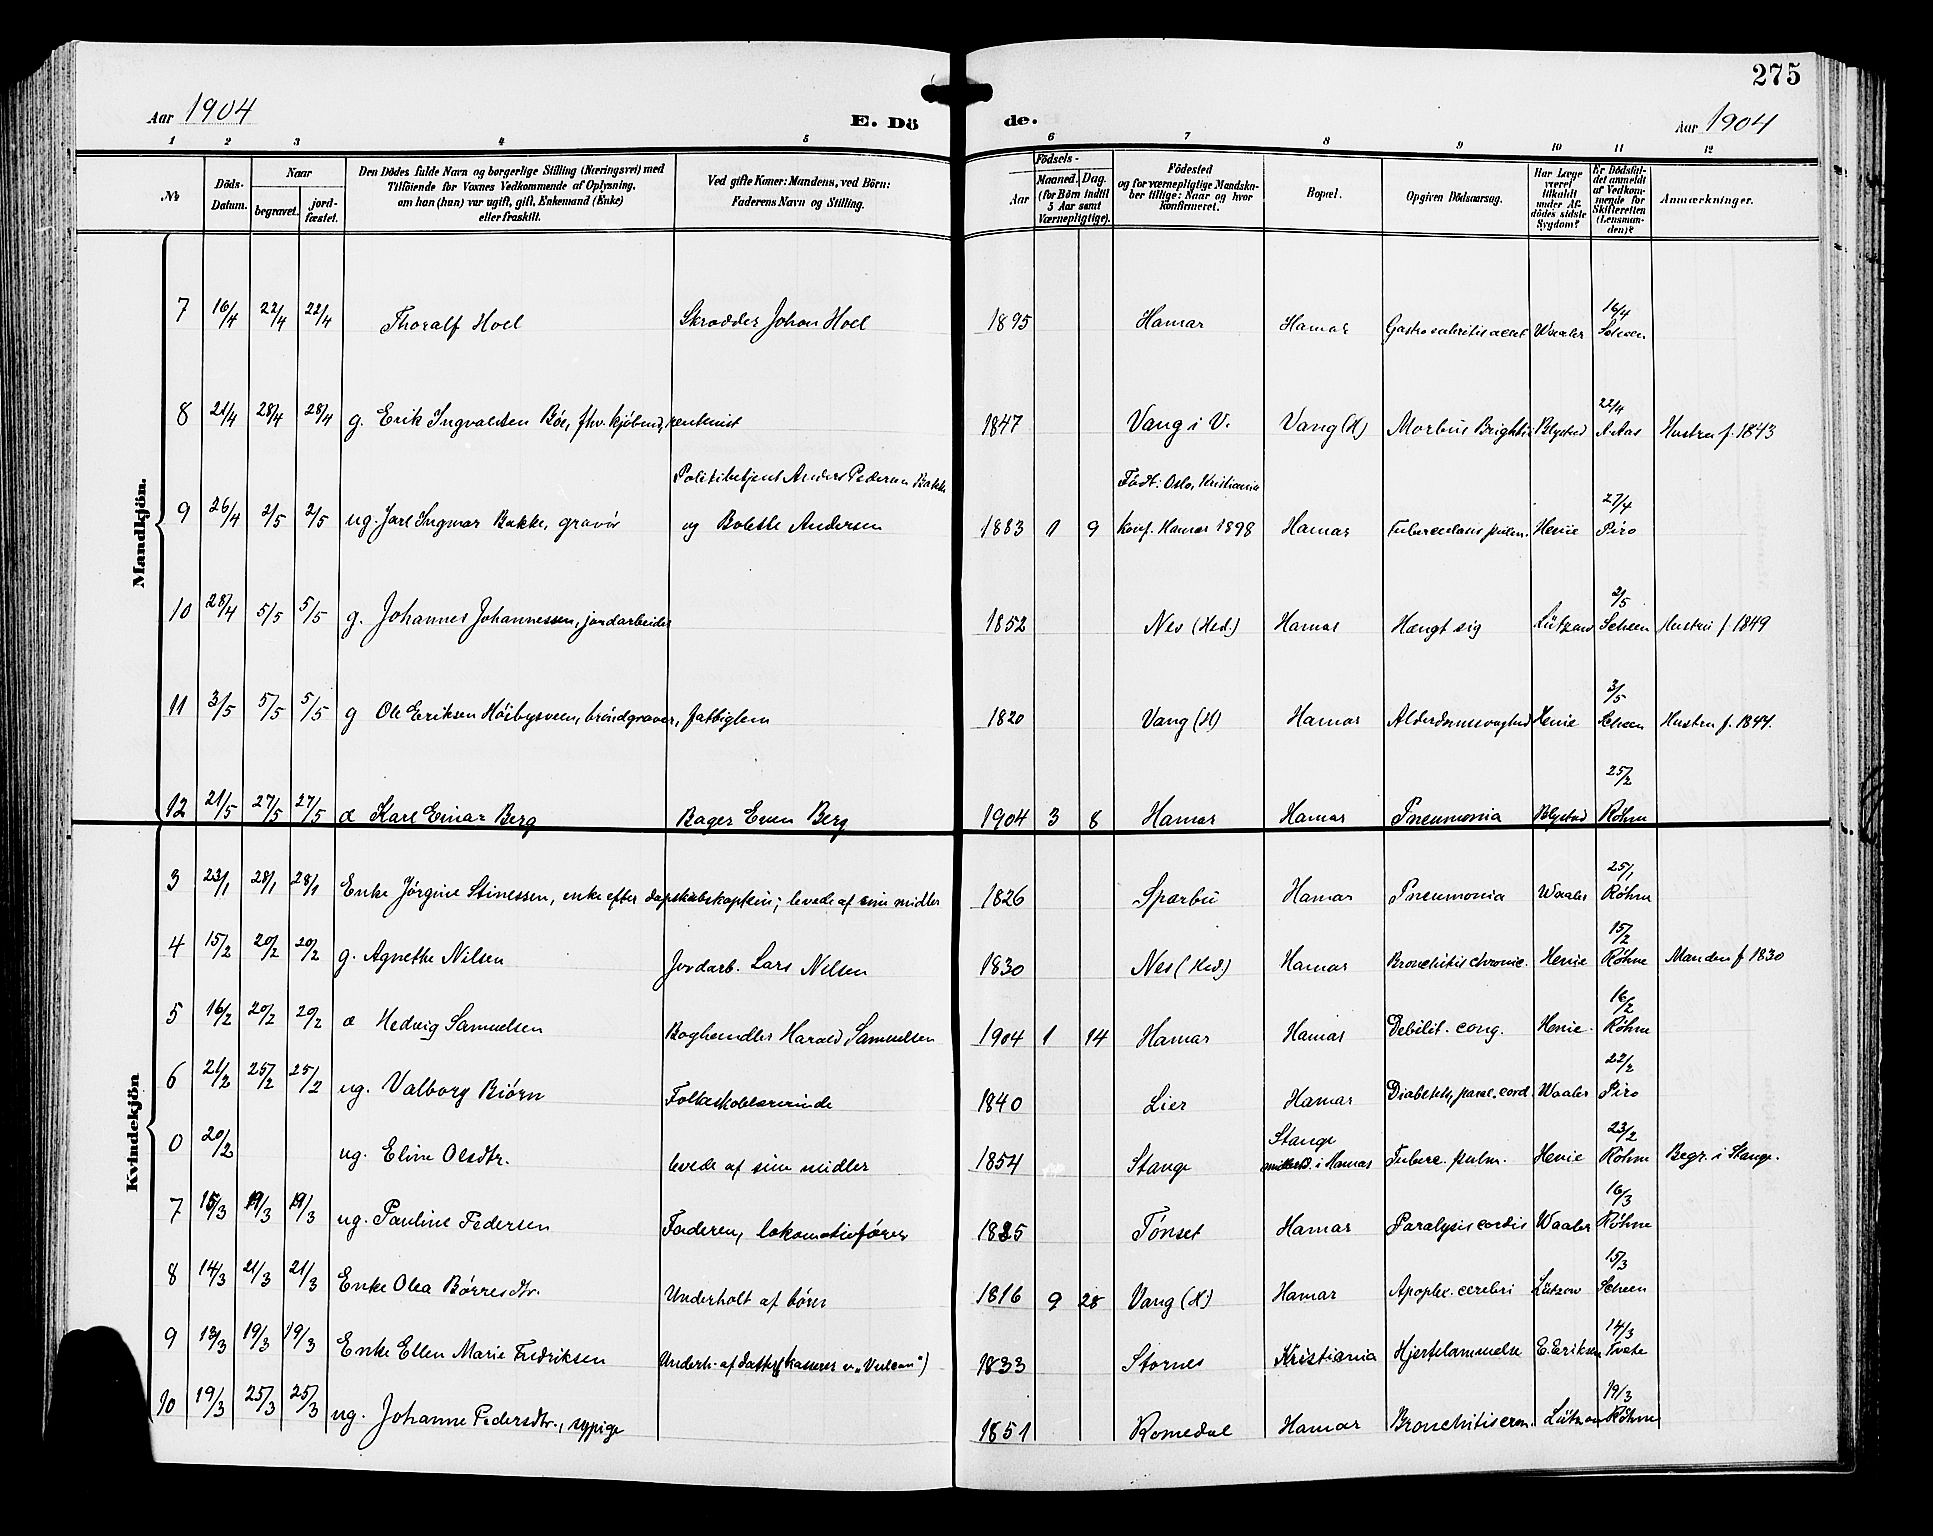 275
Aar 1904 E. Dö de. Aar 1904
1 2 3 4 5 6 7 8 9 10 11 12
№ Döds-Datum. Naar begravet. jord-fæstet. Den Dödes fulde Navn og borgerlige Stilling (Næringsvei) med Tilföiende for Voxnes Vedkommende af Oplysning, om han (hun) var ugift, gift, Enkemand (Enke) eller fraskilt. Ved gifte Koner: Mandens, ved Börn: Faderens Navn og Stilling. Födsels- Aar Maaned. Dag. (for Börn indtil 5 Aar samt Værnepligtige). Födested og for værnepligtige Mandskaber tillige: Naar og hvor konfirmeret. Bopæl. Opgiven Dödsaarsag. Har Læge været tilkaldt under Afdödes sidste Sygdom? Er Dödsfaldet anmeldt af Vedkommende for Skifteretten (Lensmanden)? Anmærkninger.
Mandkjön.
7 16/4 22/4 22/4 Thoralf Hoel Skrædder Johan Hoel 1895 Hamar Hamar Waaler 16/4 Scheen
8 21/4 28/4 28/4 g. Erik Ingvaldsen Böe, fhv. kjöbmd, rentenist 1847 Vang i V. Vang (H) Morbus Brightii Blystad 22/4 Aas Hustru f. 1843
9 26/4 2/5 2/5 ug. Jarl Ingmar Bakke, gravör Politibetjent Anders Pedersen Bakke og Bolette Andersen 1883 1 9 Födt: Oslo, Kristiania konf. Hamar 1898 Hamar Tuberculosis pulm. Henie 27/4 Piro
10 28/4 5/5 5/5 g. Johannes Johannessen, jordarbeider 1852 Nes (Hed.) Hamar Hængt sig Lützow 2/5 Scheen Hustru f 1849
11 3/5 5/5 5/5 g Ole Eriksen Höibysveen, bröndgraver, fattiglem 1820 Vang (H) Hamar Alderdomssvaghed Henie 3/5 Scheen Hustru f. 1844.
12 21/5 27/5 27/5 æ Karl Einar Berg Bager Even Berg 1904 3 8 Hamar Hamar Pneumonia Blystad 25/2 Röhme
Kvindekjön
3 23/1 28/1 28/1 Enke Jörgine Stinessen, enke efter dapskibskaptein; levede af sine midler 1826 Sparbu Hamar Pneumonia Waaler 25/1 Röhme
4 15/2 20/2 20/2 g. Agnethe Nilsen Jordarb. Lars Nilsen 1830 Nes (Hed.) Hamar Bronchitis chronic. Henie 15/2 Röhme Manden f 1830
5 16/2 20/2 20/2 æ Hedvig Samuelsen Boghandler Harald Samuelsen 1904 1 14 Hamar Hamar Debilit. cong. Henie. 16/2 Röhme
6 21/2 25/2 25/2 ug. Valborg Biörn Folkeskolelærerinde 1840 Lier Hamar Diabetes, paral. cord. Waaler 22/2 Piro
0 20/2 ug. Eline Olsdtr. levede af sine midler 1854 Stange Stange midlertid. i Hamar Tuberc. pulm. Henie 23/2 Röhme Begr. i Stange.
7 15/3 19/3 19/3 ug. Pauline Pedersen Faderen, lokomotivförer 1885 Tönset Hamar Paralysis cordis Waaler 16/3 Röhme
8 14/3 21/3 21/3 Enke Olea Börresdtr. Underholt af börn 1816 9 28 Vang (H) Hamar Apoplex. cerebri Lützow 15/3 Scheen
9 13/3 19/3 19/3 Enke Ellen Marie Fredriksen Underh. af datter (kasserer v. "Vulcan") 1833 Stornes Kristiania Hjertelammelse E. Eriksen 14/3 Tvete
10 19/3 25/3 25/3 ug. Johanne Pedersdtr., sypige 1851 Romedal Hamar Lützow 19/3 Röhme